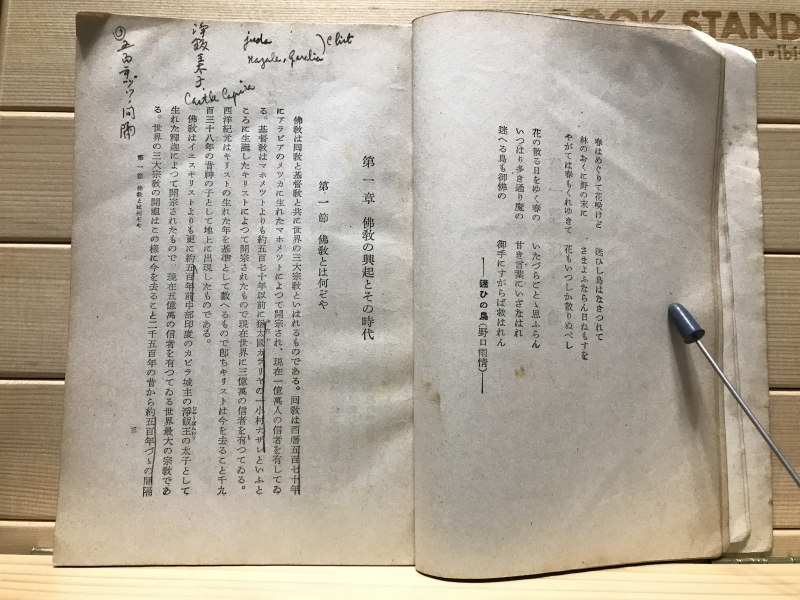 BOOK STAND
春はめぐりて花咲けど　迷ひし鳥はなきつれて
林のおくに野の末に　さまよふたらん日ねもすを
やがては春もくれゆきて　花もいつしか散りぬべし
花の散る日をゆく春の　いたづらごとゝ思ふらん
いつはり多き通り魔の　甘き言葉にいざなはれ
迷へる鳥も御佛の　御手にすがらば救はれん
――迷ひの鳥（野口雨情）――
第一章　佛教の興起とその時代
第一節　佛教とは何ぞや
佛教は囘教と基督教と共に世界の三大宗教といはれるものである。囘教は西曆五百七十年
にアラビアのメツカに生れたマホメツトによつて開宗され、現在一億萬人の信者を有してゐ
る。基督教はマホメツトよりも約五百七十年以前に猶太國ガラリヤの一小村ナザレといふと
ころに生誕したキリストによつて開宗されたもので現在世界に三億萬の信者を有つてゐる。
西洋紀元はキリストの生れた年を基準として數へるもので卽ちキリストは今を去ること千九
百三十八年の昔神の子として地上に出現したものである。
佛教はイエスキリストよりも更に約五百年前中部印度のカピラ城主の淨飯王の太子として
生れた釋迦によつて開宗されたもので、現在五億萬の信者を有つてゐる世界最大の宗教であ
る。世界の三大宗教の開祖はこの樣に今を去ること二千五百年の昔から約五百年づゝの間隔
第一節　佛教とは何ぞや
三
juda
Christ
淨飯王太子
Castle Capira